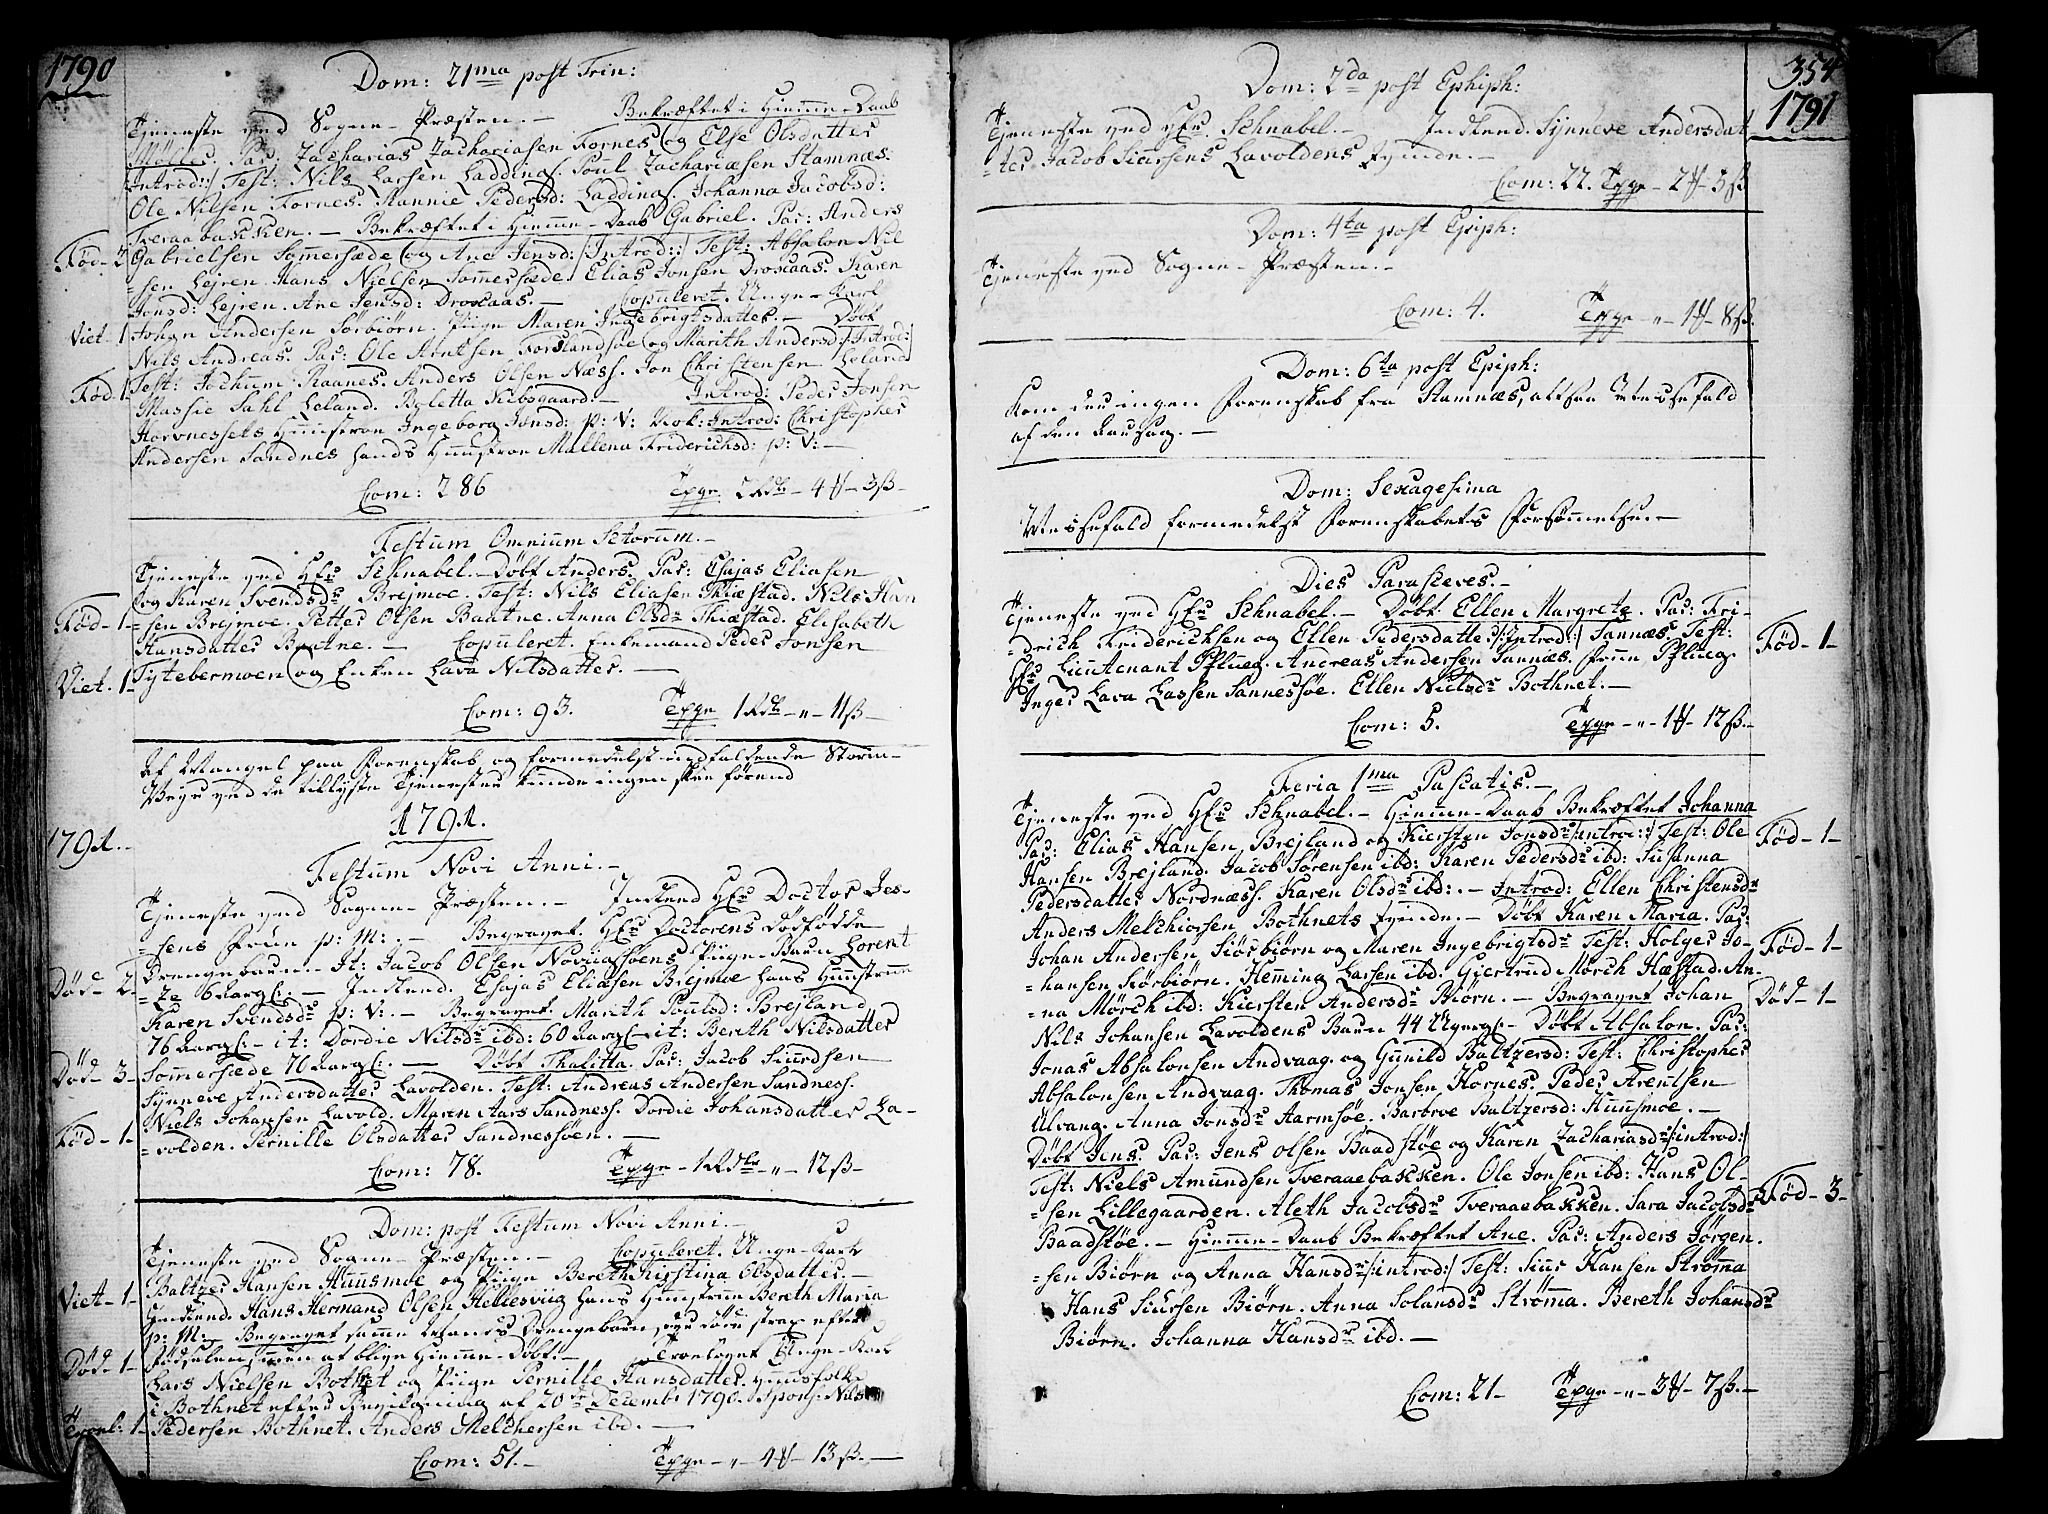 1790
Dom: 21ma post Trin:
Tjeneste ved Sogne-Præsten. — Bekræftet i Hiemme-Daab
Möller. Par: Zacharias Zachariasen Fornes og Else Olsdatter
/:Introd:/ Test: Nils Larsen Ladding. Poul Zachariæsen Stamnæs.
Ole Nilsen Fornes. Rannie Pedersd: Ladding. Johanna Jacobsd:
Tveraabakken. — Bekræftet i Hiemme-Daab Gabriel. Par: Anders
Fød-2 Gabrielsen Sommersæde og Ane Jensd: /:Introd:/ Test: Absalon Nil
=sen Lejren. Hans Nielsen Sommersæde. Elias Jonsen Droxaas. Karen
Jonsd: Lejren. Ane Jensd: Droxaas. — Copuleret. Unge-Karl
Viet-1 Johan Andersen Sørbiørn. Piige Maren Ingebrigtsdatter. — Døbt
Nils Andreas. Par: Ole Arntsen Forslandsøe og Marith Andersd: /:Introd:/
Fød-1 Test: Jochum Raanes. Anders Olsen Næss. Jon Christensen Leland
Massie Sahl Leland. Boletta Skibsgaard — Introd: Peder Jonsen
Horvnessets Huustroe Ingeborg Jonsd: p: V: Introd: Christopher
Andersen Sandnes hands Huustroe Mallena Friderichsd: p: V: —
Com: 286 Texge 2Rdr - 4 - 3ß -
Festum Omnium Sctorum. —
Tjeneste ved Hr Schnabel. — Døbt Anders. Par: Esajas Eliasen
og Karen Svendsdr Brejmoe. Test: Nils Eliasen Thiæstad. Nils Han
Fød-1- =sen Brejmoe. Petter Olsen Baatne. Anna Olsdr Thiæstad. Elisabeth
Hansdatter Botne. — Copuleret. Enkemand Peder Jonsen
Viet-1- Tytebermoen og Enken Lava Nilsdatter. —
Com: 93. Texge 1Rdr - „ - 11ß -
Af Mangel paa Forenskab, og formedelst indfaldende Storm-
Vejr ved de tillyste Tjenester kunde ingen skee førend
1791.
1791.-
Festum Novi Anni. —
Tjeneste ved Sogne-Præsten. — Indlend Hr Doctor Jes-
=sens Frue p: M: — Begravet. Hr Doctorens dødfødde
Død-2- Drengebarn. It: Jacob Olsen Noviigsøens Piige-Barn Lorent
=ze 6 Aarg. — Indlend. Esajas Eliæsen Brejmoe hans Huustrue
Karen Svendsdr p: V: — Begravet. Marith Poulsd: Brejland
76 Aarg. it: Dordie Nilsdr ibd: 60 Aarg. it: Bereth Nilsdatter
Død-3- Sommersæde 70 Aarg. — Døbt Thalitta. Par: Jacob Siurdsen
Synneve Andersdatter Lavolden. Test: Andreas Andersen Sandness.
Niels Johansen Lavold. Maren Aars Sandness. Dordie Johansdatter La-
Fød-1- =volden. Pernille Olsdatter Sandnessøen. —
Com: 78. Texge - 1Rdlr „ - 12ß -
Dom: post Festum Novi Anni. —
Tjeneste ved Sogne-Præsten. — Copuleret. Unge-Karl
Viet-1- Baltzer Hansen Huusmoe og Piige Bereth Kirstina Olsdatter. —
Indlend. Hans Hermand Olsen Hellesviig hans Huustrue Bereth Maria
p: M: — Begravet samme Mands Drengebarn, som døde strax efter
Død-1- Fødselen, uden at blive Hiemme-Døbt. — Troelovet Unge-Karl
Lars Nielsen Bothnet og Piige Pernille Hansdatter
i Bothnet efter Bevilgning af 20de Decembr 1790. Spons. Nils
Troel: 1- Pedersen Bothnet. Anders Melchersen ibd. —
Com: 51. Texge - „ - 4 - 13ß. —
354
1791
Dom: 2da post Ephiph:
Tjeneste ved Hr. Schnabel. — Indlend. Synneve Andersdat
=ter Jacob Siursens Lavoldens Qvinde. —
Com: 22. Texge - 2 - 3ß
Dom: 4ta post Epiph:
Tjeneste ved Sogne-Præsten. —
Com: 4. Texge - „ - 1 - 8ß.
Dom: 6ta post Epiph:
Kom der ingen Forenskab fra Stamnæs, altsaa Messefald
af den Aarsag. —
Dom: Sexagesima
Messefald formedelst Forenskabets Forsømmelse. —
Dies Parasceves. —
Tjeneste ved Hr Schnabel. — Døbt Ellen Margrete. Par: Fri-
=drich Friderichsen og Ellen Pedersdatter /:Introd:/ Sannæs. Test: Fød-1-
Hr Lieutenant Pflueg. Andreas Andersen Sannæs. Frue Pflueg.
Inger Lava Lassen Sannessøe. Ellen Nielsdr Bothnet. —
Com: 5. Texge - „ - 1 - 12ß. -
Feria 1ma Pascatis. —
Tjeneste ved Hr Schnabel. — Hiemme-Daab Bekræftet Johanna
Par: Elias Hansen Brejland og Kiersten Jonsdr /:introd:/ Test: Ole Fød-1-
Hansen Brejland. Jacob Sørensen ibd: Karen Pedersdr ibd: Susanna
Pedersdatter Nordnæss. Karen Olsdr ibd: — Introd: Ellen Christensdr
Anders Melchiorsen Bothnets Qvinde. — Døbt Karen Maria. Par:
Johan Andersen Siørbiørn og Maren Ingebrigtsdr Test: Holger Jo- Fød-1-
=hansen Sørbiørn. Hemming Larsen ibd. Giertrud Mørch Hæstad. An-
=na Mørch ibd: Kiersten Andersdr Biørn. — Begravet Johan Død-1-
Nils Johansen Lavoldens Barn 44 Ugerg. — Døbt Absalon. Par:
Jonas Absalonsen Andvaag. og Gunild Baltzersd: Test: Christopher
Absalonsen Andvaag. Thomas Jonsen Hornes. Peder Arentsen
Ulvang. Anna Jonsdr Aarmsøe. Barbroe Baltzersd: Huusmoe. —
Døbt Jens. Par: Jens Olsen Baadstøe og Karen Zachariasdr /:introd:/
Test: Niels Amundsen Tveraaebakken. Ole Jonsen ibd: Hans Ol- Fød-3-
=sen Lillegaarden. Aleth Jacobsdr Tveraaebakken. Sara Jacobsdr
Baadstøe. — Hiemme-Daab Bekræftet Ane. Par: Anders Jørgen.
=sen Biørn og Anna Hansdr /:introd:/ Test: Siur Hansen Strømma
Hans Siursen Biørn. Anna Solansdr Strømma. Bereth Johansdr
Biørn. Johanna Hansdr ibd. —
Com: 21- Texge - „ - 3 - 7ß. —